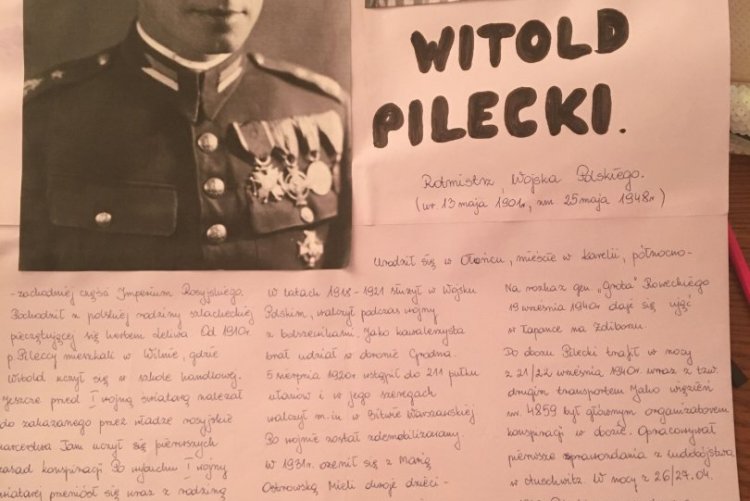 WITOLD
PILECKI.
Rotmistrz Wojska Polskiego.
(ur 13 maja 1901r, zm 25 maja 1948r)
Urodził się w Ołońcu, mieście w Karelii, północno-
-zachodniej części Imperium Rosyjskiego.
Pochodził z polskiej rodziny szlacheckiej
pieczętującej się herbem Leliwa. Od 1910r.
p. Pileccy mieszkali w Wilnie, gdzie
Witold uczył się w szkole handlowej.
Jeszcze przed I wojną światową należał
do zakazanego przez władze rosyjskie
harcerstwa Tam uczył się pierwszych
zasad konspiracji Po wybuchu I wojny
światowej przeniósł się wraz z rodziną
W latach 1918-1921 służył w Wojsku
Polskim, walczył podczas wojny
z bolszewikami. Jako kawalerzysta
brał udział w obronie Grodna.
5 sierpnia 1920r wstąpił do 211 pułku
ułanów i w jego szeregach
walczył m.in w Bitwie Warszawskiej
Po wojnie został zdemobilizowany
w 1931r. ożenił się z Marią
Ostrowską Mieli dwoje dzieci-
Na rozkaz gen „Grota" Roweckiego
19 września 1940r daje się ująć
w łapance na Żoliborzu
Do obozu Pilecki trafił w nocy
z 21/22 września 1940r. wraz z tzw.
drugim transportem Jako więzień
nr. 4859 był głównym organizatorem
konspiracji w obozie. Opracowywał
pierwsze sprawozdania z ludobójstwa
w Auschwitz. W nocy z 26/27.04.